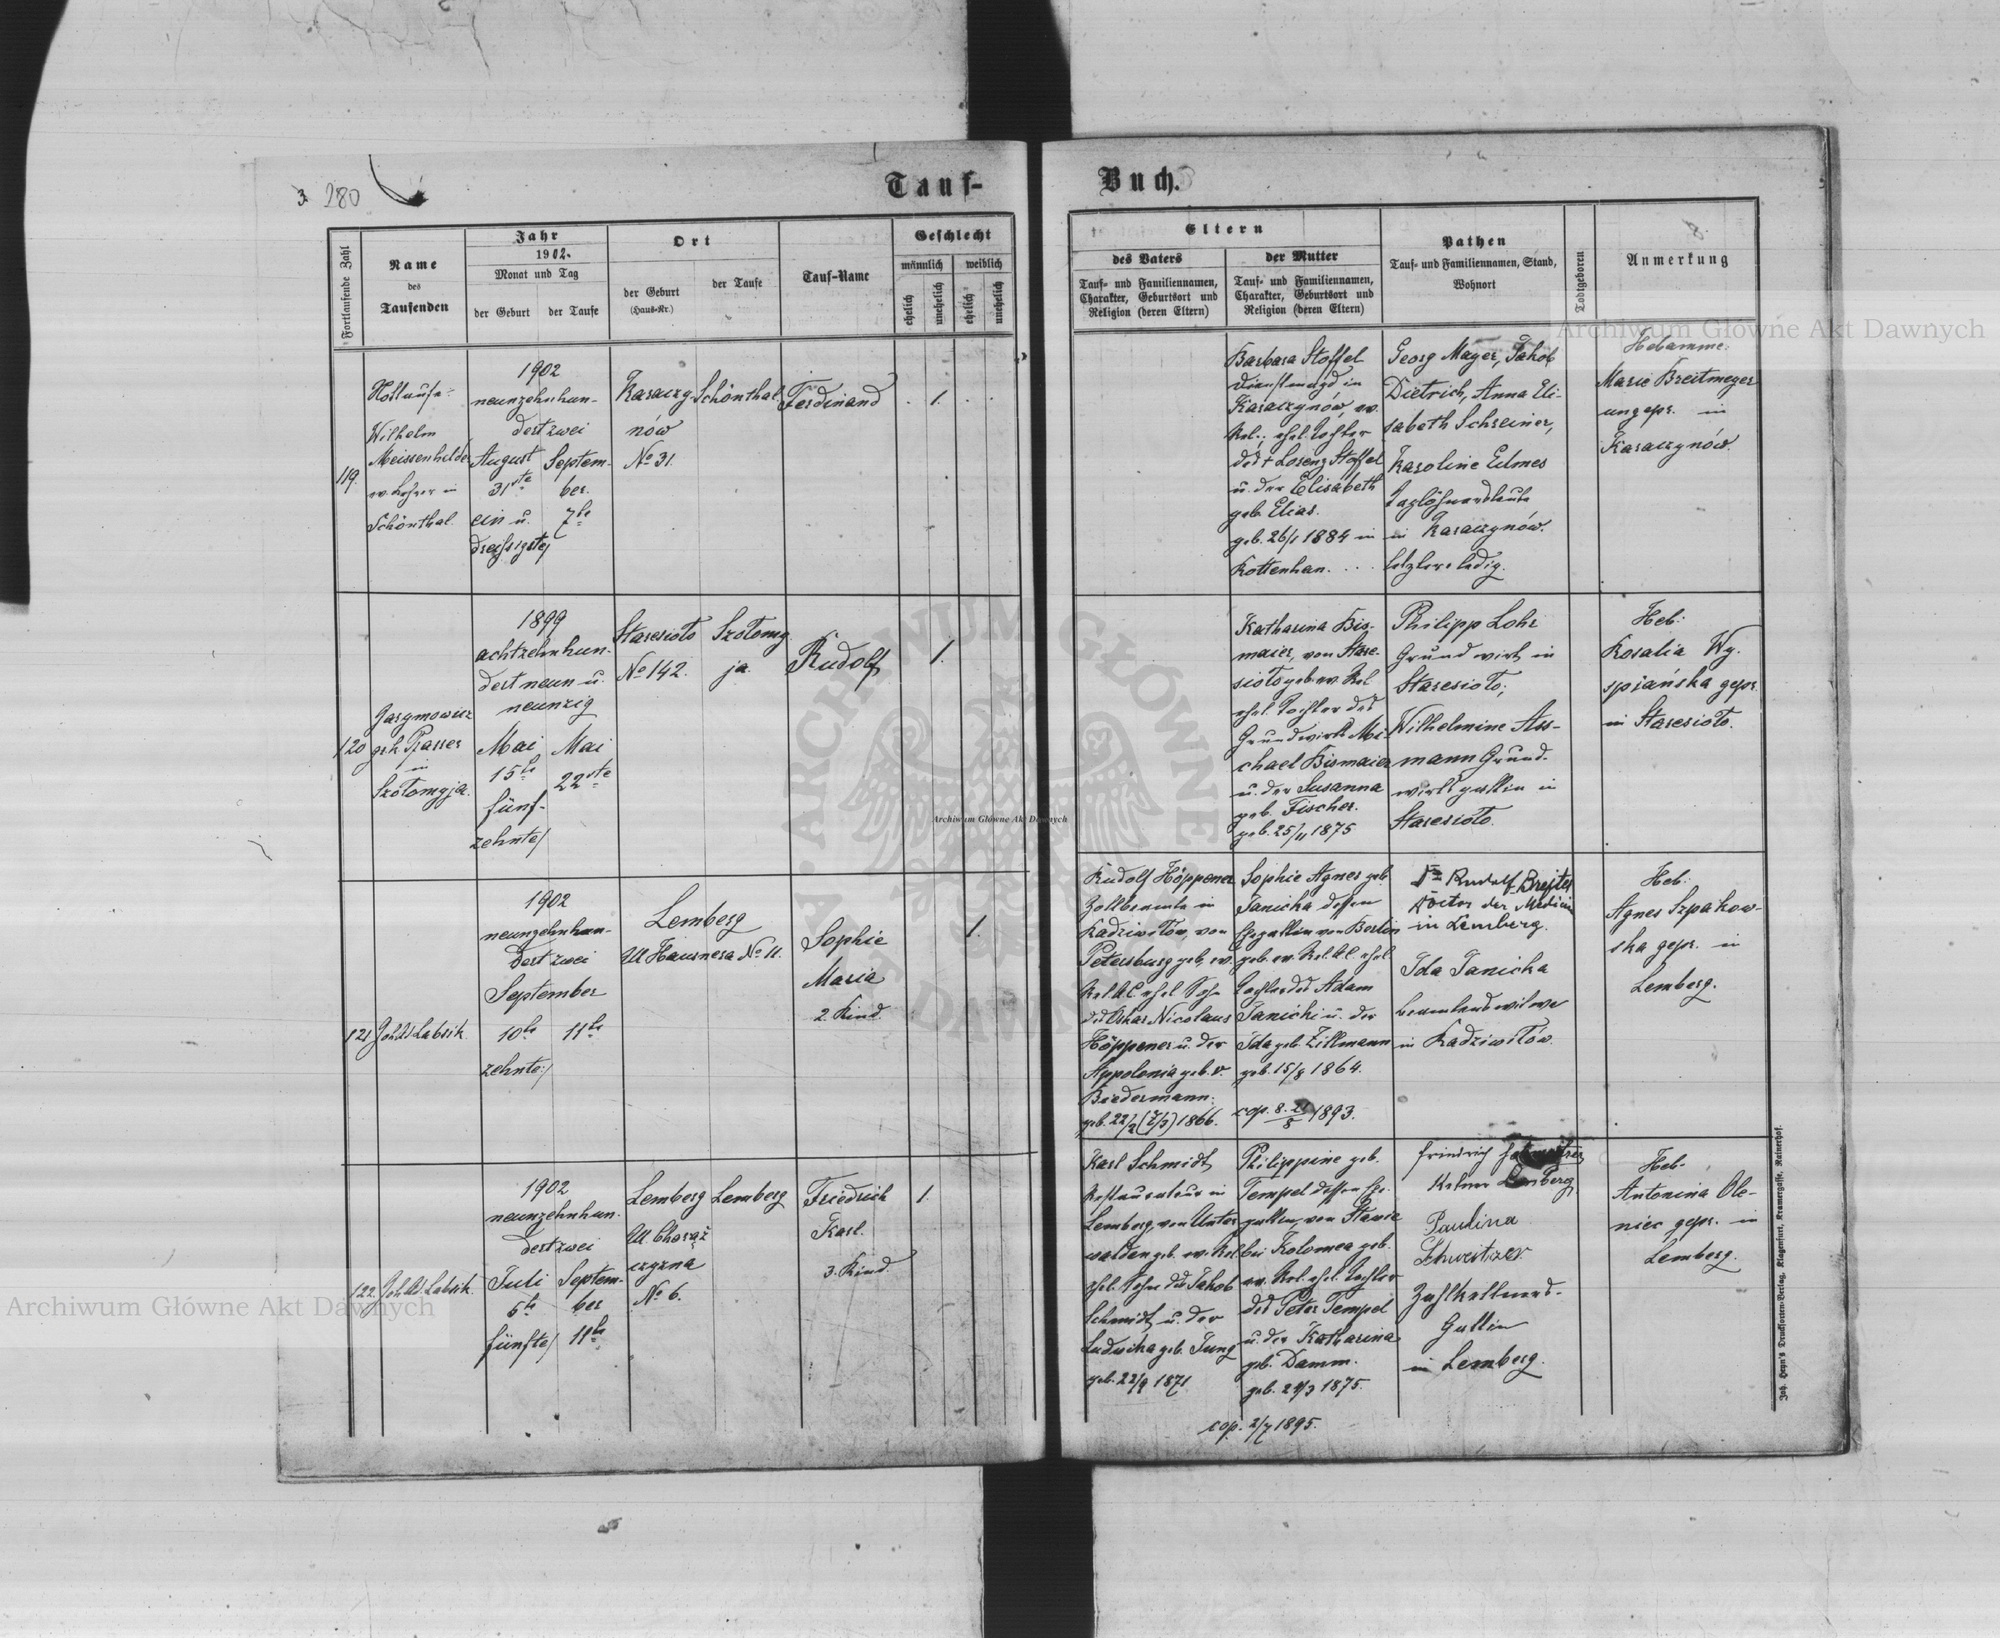 3 280
Tauf-
Buch.
Fortlaufende Zahl
Name
des
Taufenden
Jahr
1902.
Monat und Tag
der Geburt
der Taufe
Ort
der Geburt
(Haus-Nr.)
der Taufe
Tauf-Name
Geschlecht
männlich
weiblich
ehelich
unehelich
ehelich
unehelich
Eltern
des Vaters
Tauf- und Familiennamen,
Charakter, Geburtsort und
Religion (deren Eltern)
der Mutter
Tauf- und Familiennamen,
Charakter, Geburtsort und
Religion (deren Eltern)
Pathen
Tauf- und Familiennamen, Stand,
Wohnort
Todtgeboren
Anmerkung
119.
Nottaufe:
Wilhelm
Meissenhelder
ev. Lehrer in
Schönthal.
1902
neunzehnhun-
dert zwei
August
31ste
ein u.
dreissigste/
Septem-
ber.
7te
Karaczy-
nów
No 31.
Schönthal
Ferdinand
1.
Barbara Stoffel
Dienstmagd in
Karaczynów, ev.
Rel.; ehel. Tochter
des † Lorenz Stoffel
u. der Elisabeth
geb. Elias.
geb. 26/1 1884 in
Rottenhan.
Georg Mayer, Jakob
Dietrich, Anna Eli-
sabeth Schreiner,
Karoline Edmes
Taglöhnersleute
in Karaczynów.
letztere ledig.
Hebamme:
Marie Breitmeyer
ungepr. in
Karaczynów.
120
Jarymowicz
grk. Pfarrer
in
Szołomyja.
1899
achtzehnhun-
dert neun u.
neunzig
Mai
15te
fünf-
zehnte/
Mai
22ste
Staresioło
No 142.
Szołomy-
ja.
Rudolf
1.
Katharina Bis-
maier, von Stare-
sioło geb. ev. Rel.
ehel. Tochter des
Grundwirts Mi-
chael Bismaier
u. der Susanna
geb. Fischer.
geb. 25/11 1875
Philipp Lohr
Grundwirt in
Staresioło;
Wilhelmine Ass-
mann Grund-
wirtsgattin in
Staresioło.
Heb:
Rosalia Wy-
spiańska gepr.
in Staresioło.
121
1902
neunzehnhun-
dert zwei
September
10te
11te
zehnte/
Lemberg
Ul Hausnera No 11.
Sophie
Maria
2. Kind.
1.
Rudolf Höppener
Zollbeamte in
Radziwiłów, von
Petersburg geb. ev.
Rel. A.C. ehel. Sohn
des Oskar Nicolaus
Höppener u. der
Appolonia geb. v.
Biedermann.
geb. 22/2 (7/3) 1866.
Sophie Agnes geb.
Janicka dessen
Ehegattin von Berlin
geb. ev. Rel. A.C. ehel.
Tochter des Adam
Janicki u. der
Ida geb. Zillmann
geb. 15/8 1864.
1893.
Dr. Rudolf
Doctor der Medicin
in Lemberg.
Ida Janicka
Beamtenswitwe
in Radziwiłów.
Heb:
Agnes Szpakow-
ska gepr. in
Lemberg.
122.
1902
neunzehnhun-
dert zwei
Juli
5te
fünfte/
Septem-
ber
11te
Lemberg
Ul. Chorąż-
czyzna
No 6.
Lemberg
Friedrich
Karl.
3. Kind.
1.
Karl Schmidt
Restaurateur in
Lemberg, von Unter-
walden geb. ev. Rel.
ehel. Sohn des Jakob
Schmidt u. der
Ludwika geb. Jung
geb. 22/9 1871
Philippine geb.
Tempel dessen Ehe-
gattin, von Sławie
bei Kolomea geb.
ev. Rel. ehel. Tochter
des Peter Tempel
u. der Katharina
geb. Damm.
1875.
cop. 2/7 1895.
Friedrich
Lemberg
Paulina
Schweitzer
Zahlkellners-
Gattin
in Lemberg.
Heb-
Antonina Ole-
niec gepr. in
Lemberg.
Joh. Heyn's Drucksorten-Verlag, Klagenfurt, Kramergasse, Rainerhof.
Archiwum Główne Akt Dawnych
Archiwum Główne Akt Dawnych
Archiwum Główne Akt Dawnych